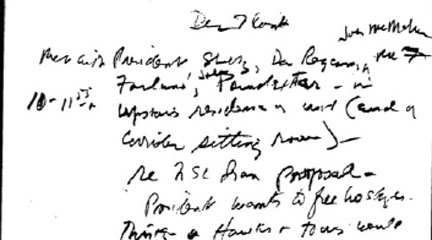 John McMahon
Met with President, Shultz, Don Regan, Mc
Farlane, Poindexter - in
10-11
upstairs residence of (end of
corridor sitting room) -
re NSC Iran proposal -
President wants to free hostages.
Thinks Hawks + Tows would